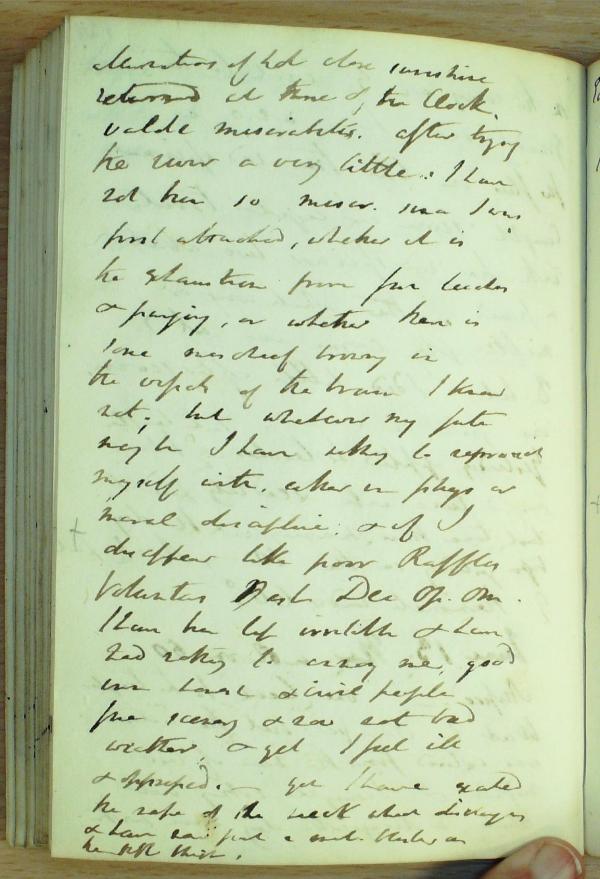 alterations of hot close sunshine
returned at three of the Clock.
valde miserabilis. after trying
the river a very little: I have
not been so miser. since I was
first attacked, whether it is
the exhaustion from four leeches
& purging, or whether there is
some mischief brewing in
the vessels of the brain I know
not; but whatever my fate
may be I have nothing to reproach
myself with, either in phys or
moral discipline: & if I
disappear like poor Raffles
Voluntas Dei Op. Om.
I have been less irritable & have
had nothing to annoy me, good
inn honest & civil people
fine scenery & now not bad
weather, & yet I feel ill
& oppressed. — yet I have
the nape of the neck
& have